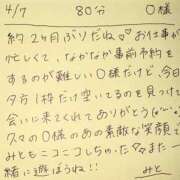 4/7 80分 O様
約2ヶ月ぶりだね♡♡お仕事が
忙しくて、なかなか事前予約を
するのが難しいO様だけど、今日
夕方1枠だけ空いてるのを見つけて
会いに来てくれてありがとう(
久々のO様のあの素敵な笑顔で
みともニコニコしちゃった また一
緒に遊ぼうね!! みと